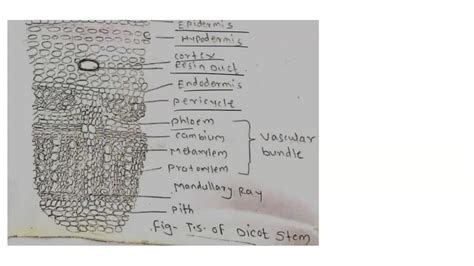 Epidermis
Hypodermis
cortex
Resin Duct
Endodermis
pericycle
phloem
cambium
Metaxylem
protoxylem
vascular
bundle
Mandullary Ray
pith
fig- T.S. of Dicot Stem